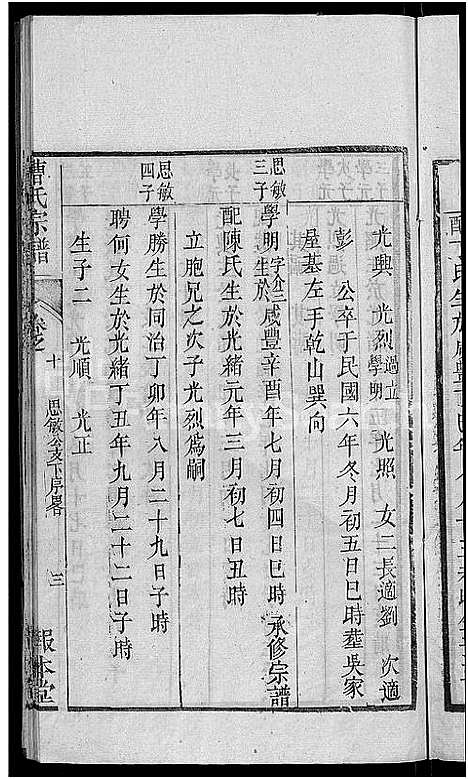 光興　光烈過立學明　光照　女二長適劉　次適
彭　公卒于民國六年冬月初五日巳時葬吳家
屋基左手乾山巽向
思敏三子學明字介三生於咸豐辛酉年七月初四日巳時承修宗譜
配陳氏生於光緒元年三月初七日丑時
立胞兄之次子光烈爲嗣
思敏四子學勝生於同治丁卯年八月二十九日子時
聘何女生於光緒丁丑年九月二十二日子時
生子二　光順　光正
曹氏宗譜　卷之十　思敏公支下序畧　三　報本堂